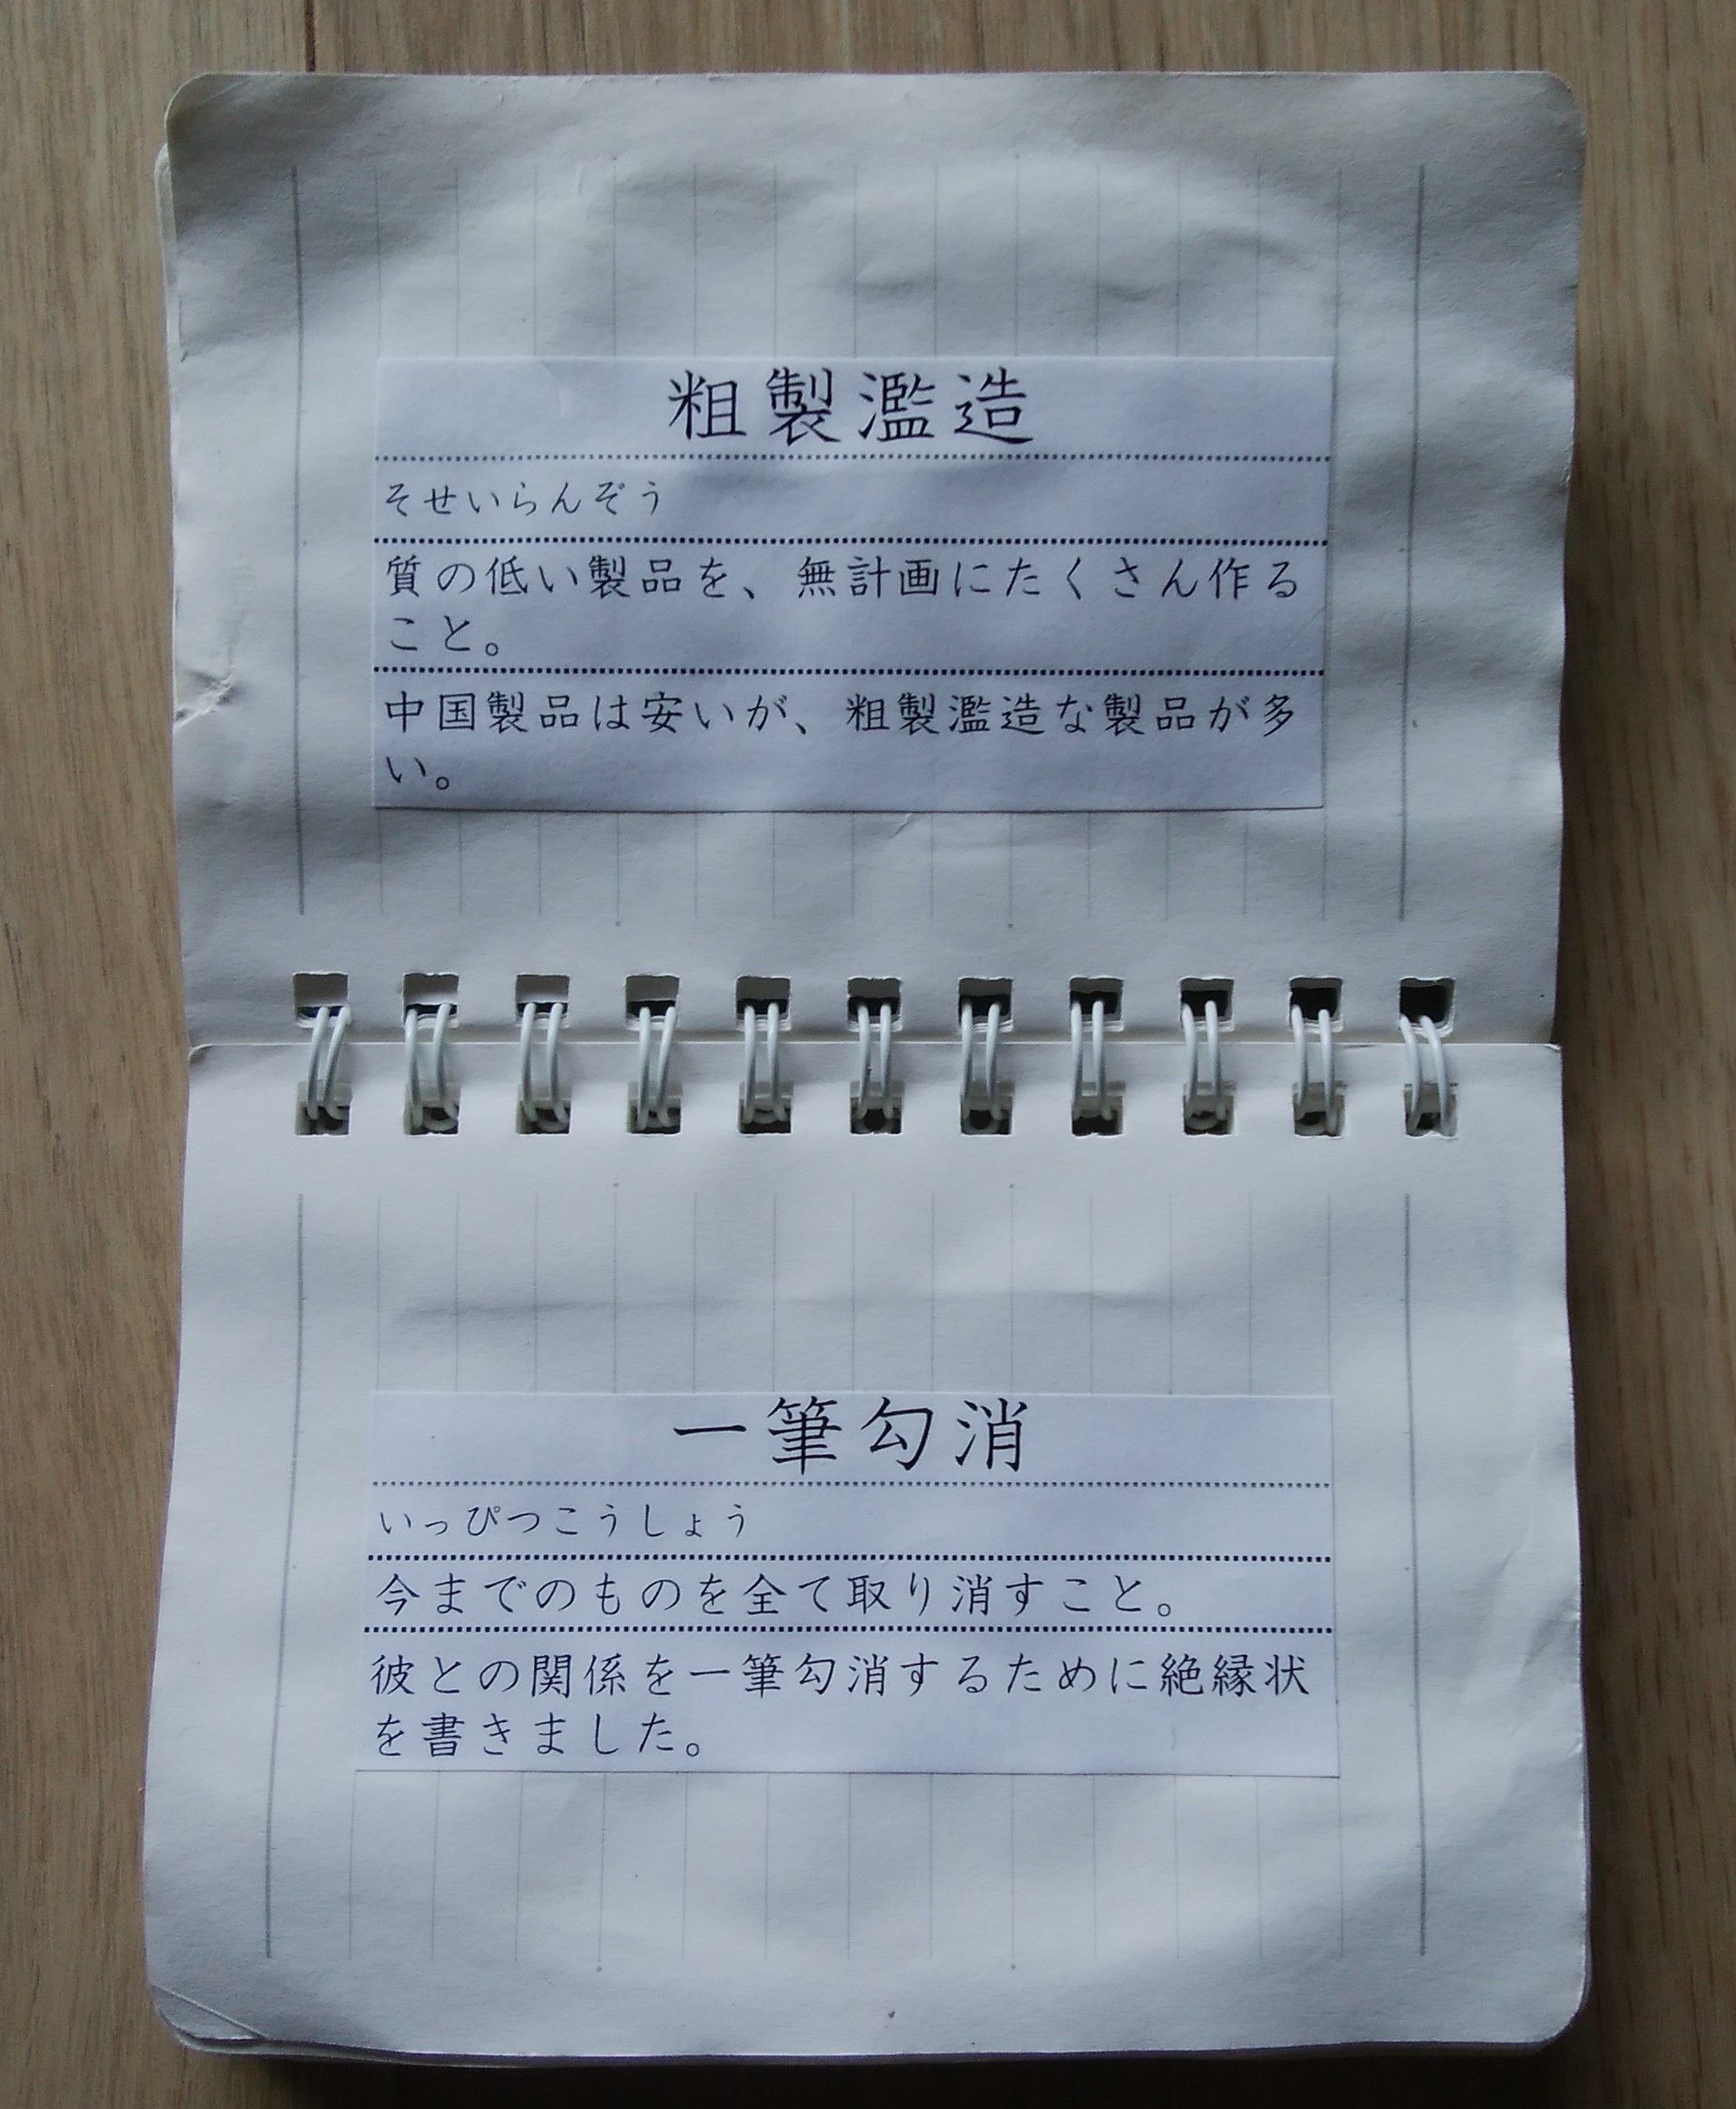 粗製濫造
そせいらんぞう
質の低い製品を、無計画にたくさん作る
こと。
中国製品は安いが、粗製濫造な製品が多
い。
一筆勾消
いっぴつこうしょう
今までのものを全て取り消すこと。
彼との関係を一筆勾消するために絶縁状
を書きました。